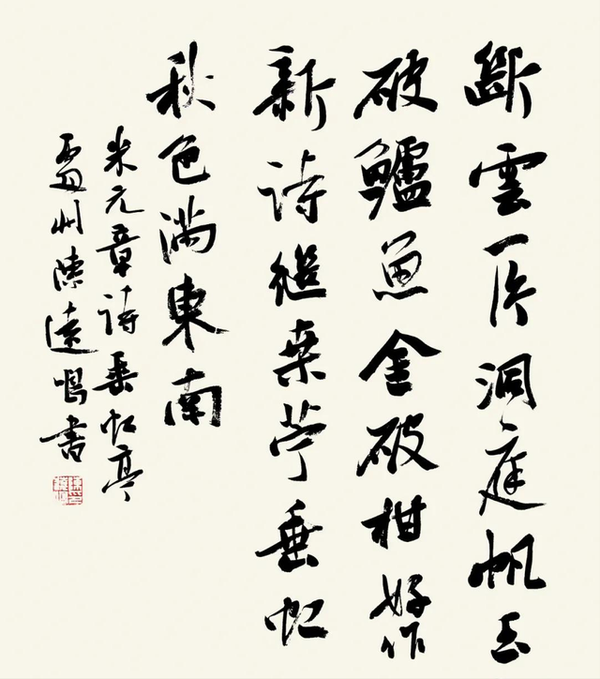 斷雲一片洞庭帆玉
破鱸魚金破柑好作
新詩繼桑苧垂虹
秋色滿東南
米元章詩垂虹亭
州陳遠鳴書